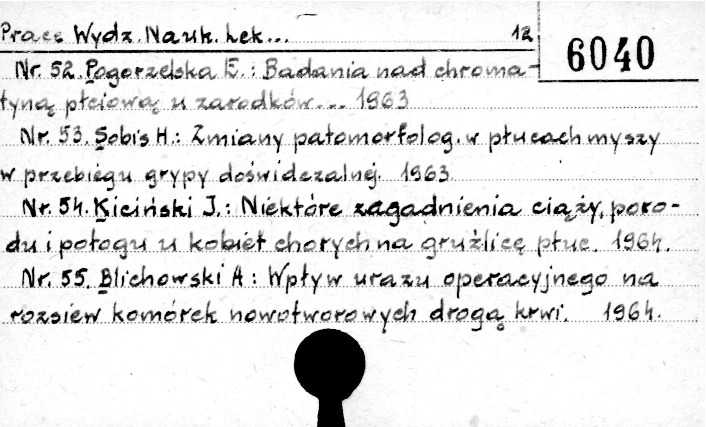 Prace Wydz. Nauk. Lek... 12
6040
Nr. 52. Pogorzelska E.: Badania nad chroma-
tyną płciową u zarodków... 1963
Nr. 53. Sobis H.: Zmiany patomorfolog. w płucach myszy
w przebiegu grypy doświdczalnej. 1963
Nr. 54. Kiciński J.: Niektóre zagadnienia ciąży, poro-
du i połogu u kobiet chorych na gruźlicę płuc. 1964.
Nr. 55. Blichowski A: Wpływ urazu operacyjnego na
rozsiew komórek nowotworowych drogą krwi. 1964.